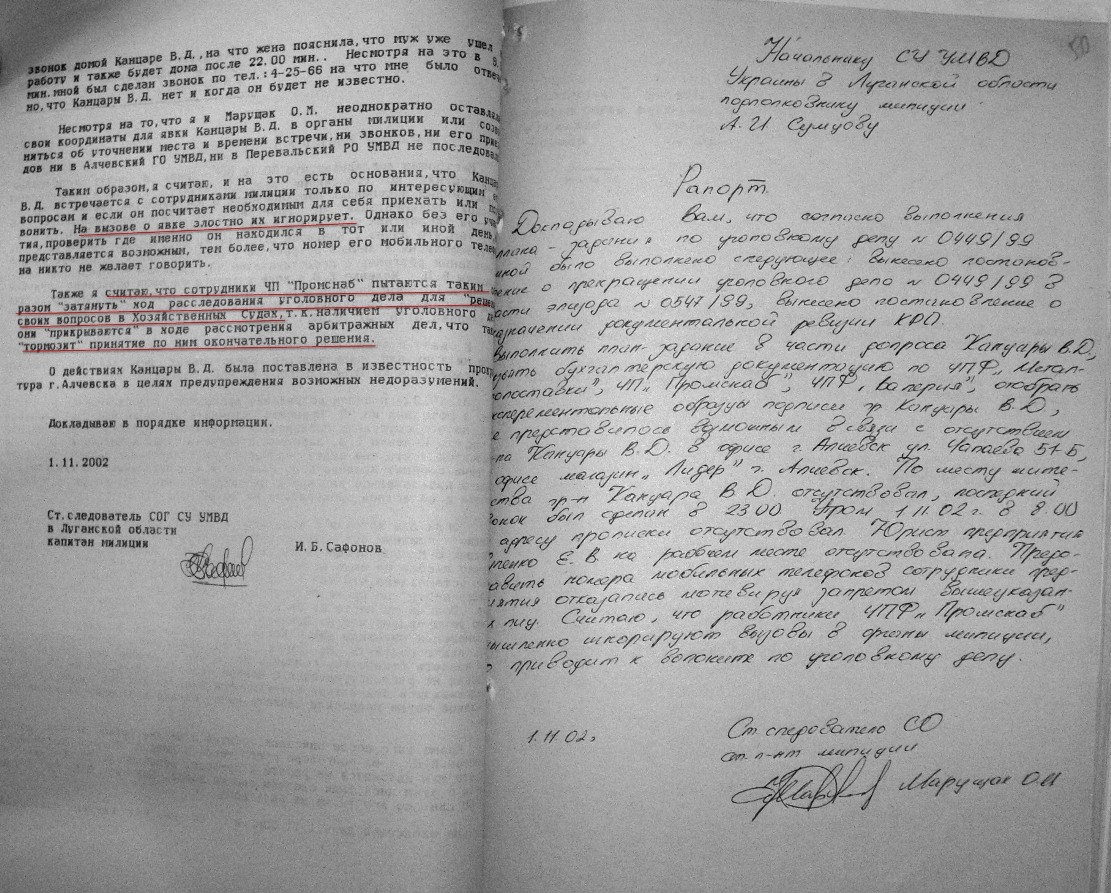 звонок домой Канцаре В.Д.,на что жена пояснила,что муж уже ушел
работу и также будет дома после 22.00 мин.. Несмотря на это в 8.
мин.мной был сделан звонок по тел.:4-25-66 на что мне было отве
но,что Канцары В.Д. нет и когда он будет не известно.
Несмотря на то,что я и Марущак О.М. неоднократно оставля
свои координаты для явки Канцары В.Д. в органы милиции или созв
ниться об уточнении места и времени встречи,ни звонков,ни его при
дов ни в Алчевский ГО УМВД,ни в Перевальский РО УМВД не последова
Таким образом,я считаю, и на это есть основания,что Канца
В.Д. встречается с сотрудниками милиции только по интересующим
вопросам и если он посчитает необходимым для себя приехать или
вонить. На вызове о явке злостно их игнорирует. Однако без его
тия,проверить где именно он находился в тот или иной день,
представляется возможным, тем более,что номер его мобильного теле
на никто не желает говорить.
Также я считаю,что сотрудники ЧП "Промснаб" пытаются таким
разом "затянуть" ход расследования уголовного дела для "реше
своих вопросов в Хозяйственных Судах,т.к.наличием уголовного д
они "прикрываются" в ходе рассмотрения арбитражных дел,что так
"тормозит" принятие по ним окончательного решения.
О действиях Канцары В.Д. была поставлена в известность прок
тура г.Алчевска в целях предупреждения возможных недоразумений.
Докладываю в порядке информации.
1.11.2002
Ст.следователь СОГ СУ УМВД
в Луганской области
капитан милиции
И.Б.Сафонов
Начальнику СУ УМВД
Украины в Луганской области
подполковнику милиции
А.И Сумцову
Рапорт.
Докладываю Вам, что согласно выполнения
плана - задания по уголовному делу № 0449/99
мной было выполнено следующее: вынесено постанов-
ление о прекращении уголовного дело № 0449/99 в
части эпизода № 0547/99, вынесено постановление о
назначении документальной ревизии КРО.
Выполнить план-задание в части допроса Канцары В.Д,
изъять бухгалтерскую документацию по ЧПФ „Метал-
лопоставки", ЧП „Промснаб", ЧПФ „Валерия", отобрать
эксперементальные образцы подписи гр Канцары В.Д,
не представилось возможным в связи с отсутствием
гр-на Канцары В.Д. в офисе г. Алчевск ул. Чапаева 57-Б,
офисе магазин „Лидер" г. Алчевск. По месту жите-
льства гр-н Канцара В Д. отсутствовал, последний
звонок был сделан в 23 00. Утром 1 11.02 г. в 8.00
адресу прописки отсутствовал Юрист предприятия
ченко Е. В. на рабочем месте отсутствовала. Предо-
ставить номера мобильных телефонов сотрудники пред-
приятия отказались мотивируя запретом вышеуказан-
ых лиц. Считаю, что работники ЧПФ „Промснаб"
умышленно игнорируют вызовы в органы милиции,
приводит к волоките по уголовному делу.
1.11.02г
Ст следователь СО
ст. л-нт милиции
Марущак О.М